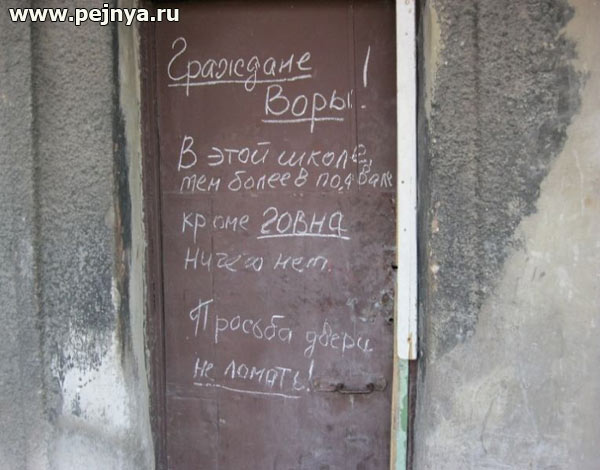 www.pejnya.ru
Граждане
Воры!
В этой школе,
тем более в подвале
кроме говна
ничего нет.
Просьба двери
не ломать!